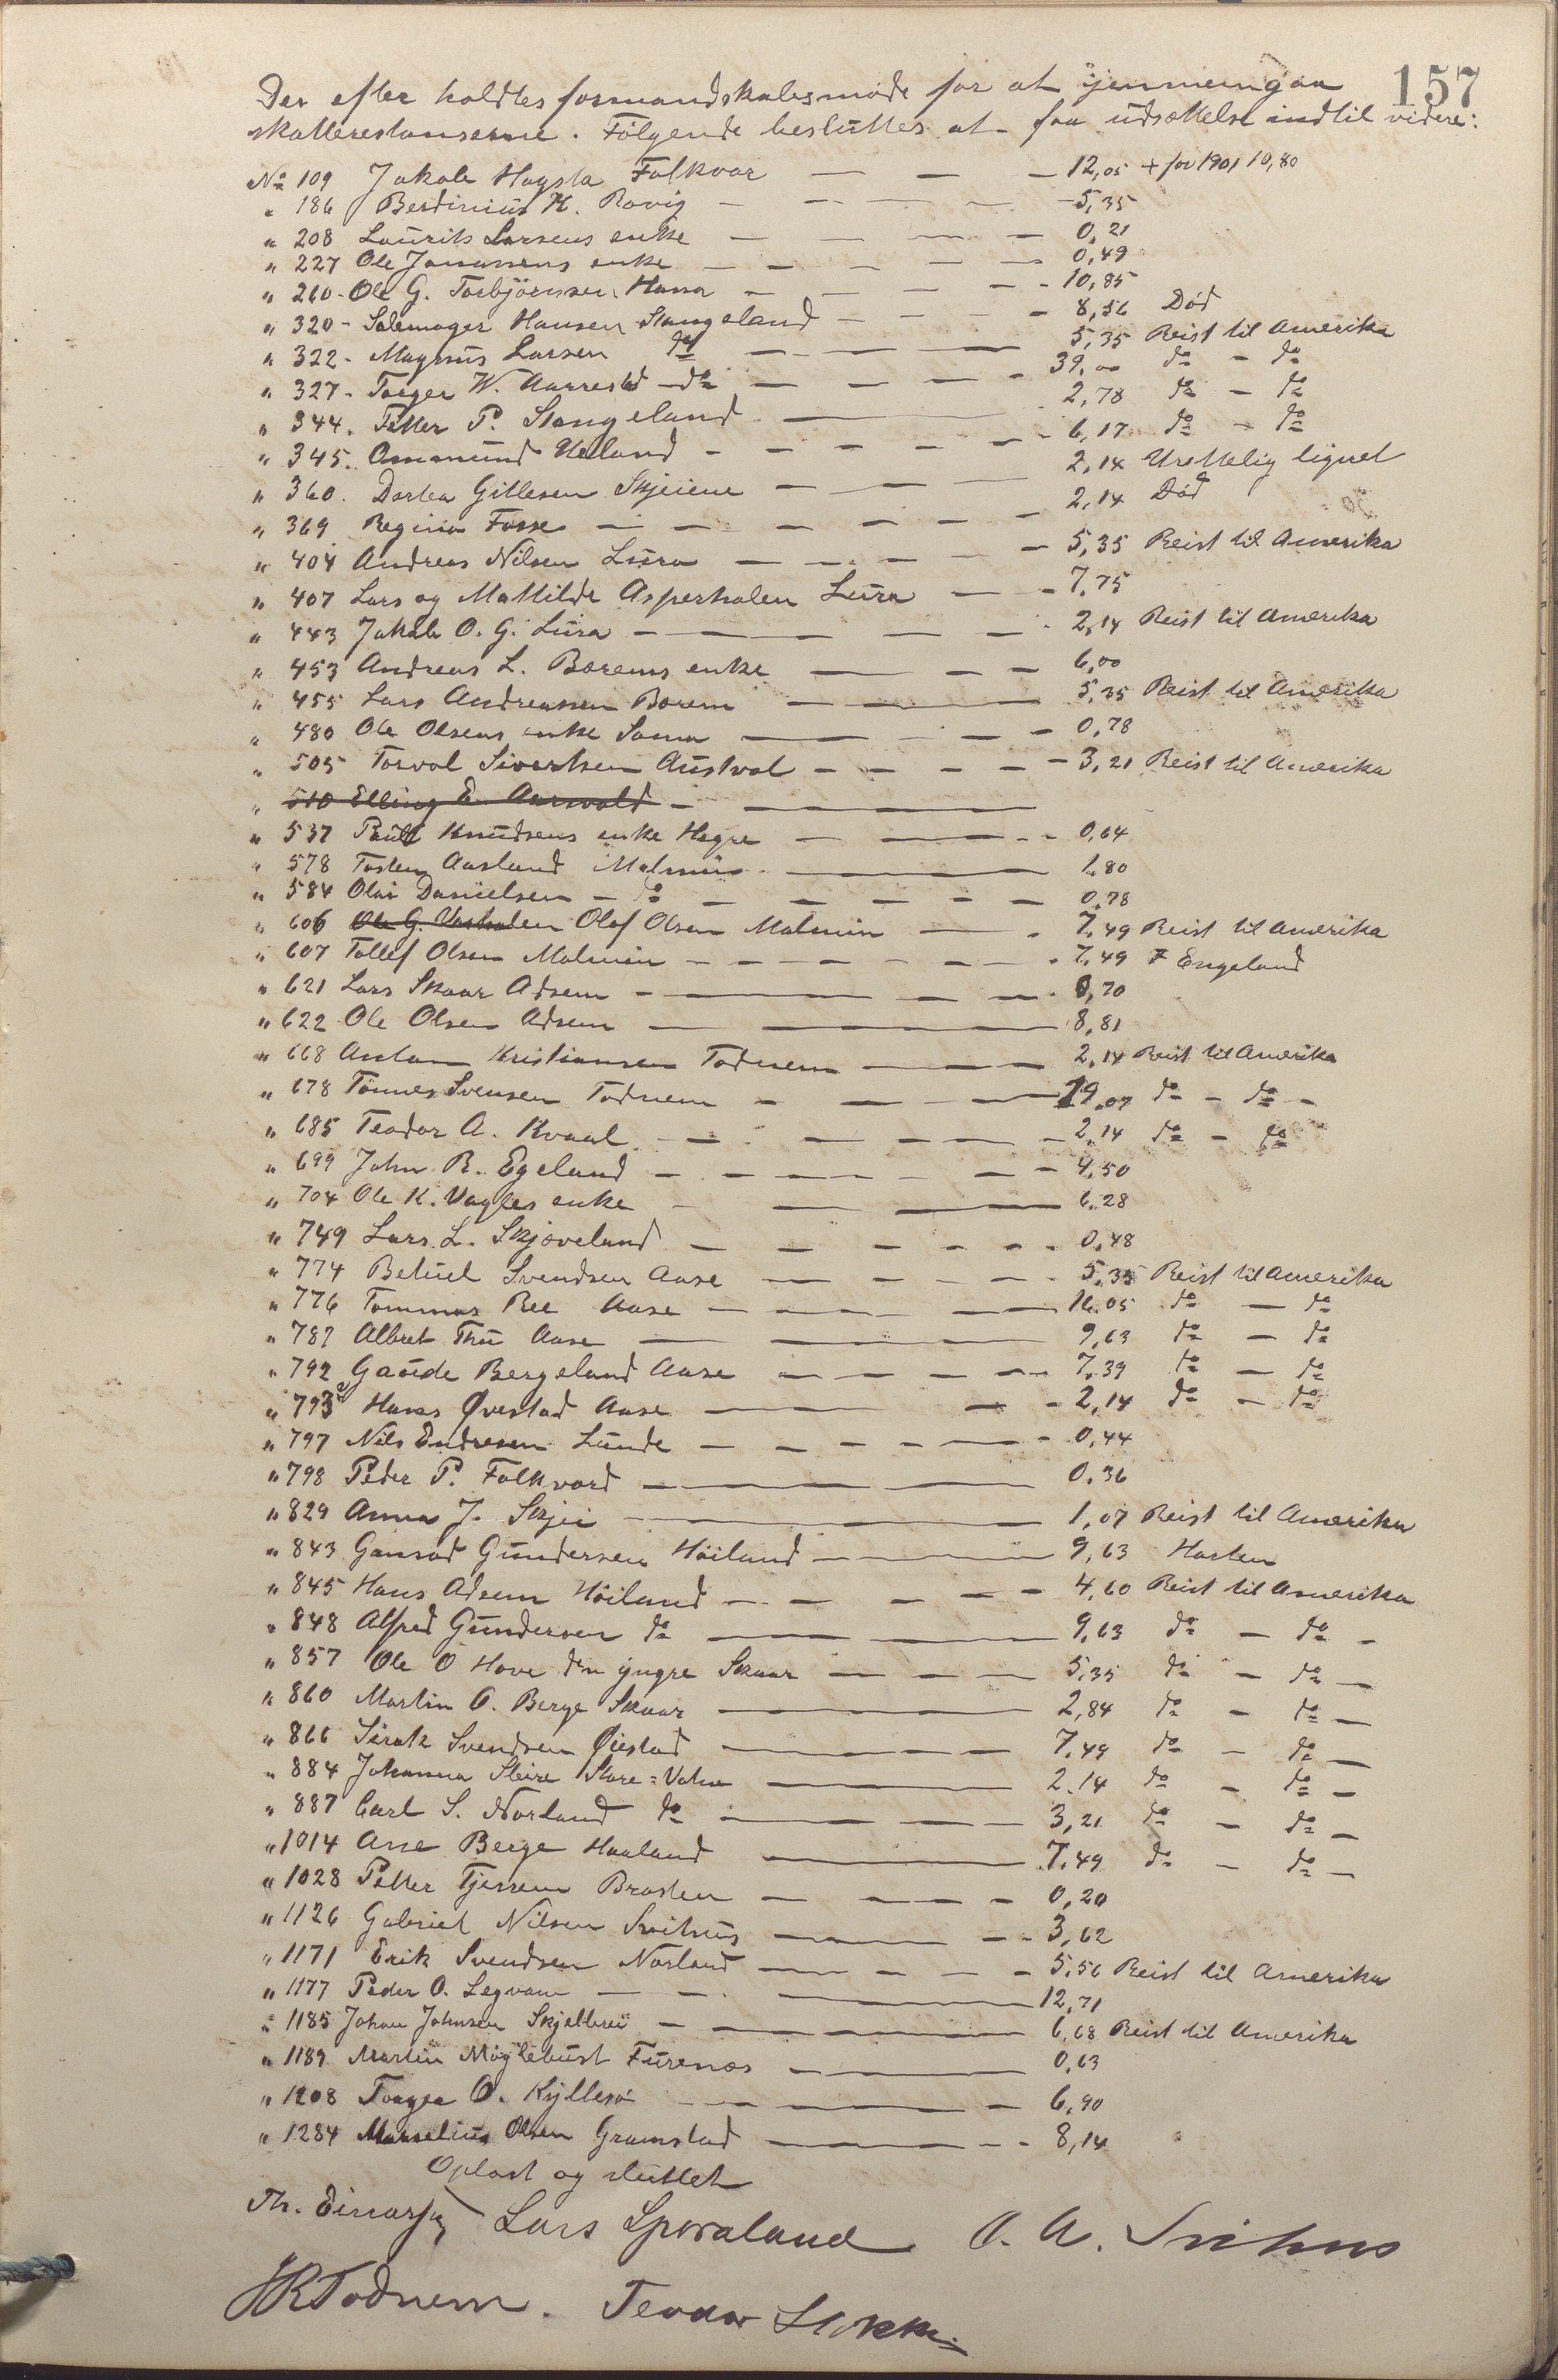 157
Der efter holdtes formandskabsmøde for at gjennemgaa
skatterestanserne. Følgende besluttes at faa udsættelse indtil videre:
No 109 Jakob Hagsta Folkvor — — — 12,05 + for 1901 10,80
" 186 Berdinius H. Rovig — — — — 5,35
" 208 Laurits Larsens enke — — — — 0,21
" 227 Ole Jonassens enke — — — — 0,49
" 260 - Ole G. Torbjörnsen Hana — — — — 10,85
" 320 - Salemager Hansen Stangeland — — — — 8,56 Död
" 322 - Magnus Larsen do — — — 5,35 Reist til Amerika
" 327 - Torger W. Aarrestad - do — — — 39,00 do - do
" 344. Petter P. Stangeland — — 2,78 do - do
" 345. Ommund Ueland - — — — — 6,17 do - do
" 360. Dortea Gitlesen Skjeiene — — — 2,14 Urettelig lignet
" 369 Regina Fosse — — — — — 2,14 Död
" 404 Andreas Nilsen Lura — — — — 5,35 Reist til Amerika
" 407 Lars og Mathilde Asperholen Lura — - 7,75
" 443 Jakob O. G. Lura — — — — — 2,14 Reist til Amerika
" 453 Andreas L. Borems enke — — — 6,00
" 455 Lars Andreassen Borem — — — 5,35 Reist til Amerika
" 480 Ole Olsens enke Soma — — — — 0,78
" 505 Torval Sivertsen Austvol — — — — - 3,21 Reist til Amerika
" 510 Elling E. Aarsvold — — —
" 537 Paul Knudsens enke Hogre — — - - 0,64
" 578 Tosten Aasland Malmin — — — 1,80
" 584 Olai Danielsen - do — — — — — 0,78
" 606 Ole G. Olaf Olsen Malmin — . 7,49 Reist til Amerika
" 607 Tollef Olsen Malmin — — — — — — . 7,49 Engeland
" 621 Lars Skaar Adsem - — — — — . 0,70
" 622 Ole Olsen Adsem — — 8,81
" 668 Anton Kristiansen Todnem — — — 2,14 Reist til Amerika
" 678 Tönnes Svensen Todnem - — - — 19,07 do - do -
" 685 Teodor A. Kvaal — — — — — 2,14 do - do
" 699 John R. Egeland — — — — — 4,50
" 704 Ole K. Vagles enke — — — 6,28
" 749 Lars L. Skjæveland — — — - - - 0,48
" 774 Betuel Svendsen Aase — — — — 5,35 Reist til Amerika
" 776 Tommas Ree Aase — — — — 16,05 do — do
" 787 Albret Thu Aase — — — 9,63 do — do
" 792 Gaude Bergeland Aase — — — — 7,39 do — do
" 793 Hans Øvestad Aase — — — - 2,14 do — do
" 797 Nils Endresen Lunde — — — — — - 0,44
" 798 Peder P. Folkvord — — — 0,36
" 829 Anna J. Skjei — — — 1,07 Reist til Amerika
" 843 Gansad Gundersen Höiland — — — 9,63 Hasten
" 845 Hans Adsem Höiland — — — — — 4,60 Reist til Amerika
" 848 Alfred Gundersen do — — — 9,63 do — do -
" 857 Ole O Hove den yngre Skaar — — — — 5,35 do — do —
" 860 Martin O. Berge Skaar — — 2,84 do - do —
" 866 Sirak Svendsen Øiestad — — — — 7,49 do - do —
" 884 Johanna Sleire Stare=Vatne — — — 2,14 do - do —
" 887 Carl S. Norland do — — — — 3,21 do - do —
" 1014 Ane Berge Haaland — — — 7,49 do - do —
" 1028 Petter Tjessem Brosten — — — — 0,20
" 1126 Gabriel Nilsen Svihus — — — - 3,62
" 1171 Erik Svendsen Norland — — — — - 5,56 Reist til Amerika
" 1177 Peder O. Legvam — — — — 12,71
" 1185 Johan Johnsen Skjelbrei — — — — 6,68 Reist til Amerika
" 1189 Martin Möglebust Furenæs — — — 0,63
" 1208 Torger O. Kyllesø — — — — 6,90
" 1284 Marselius Olsen Gramstad — — — - 8,14
Oplæst og sluttet
Th. Einarsen Lars Sporaland O. A. Svihus
J R Todnem. Teodor Stokke